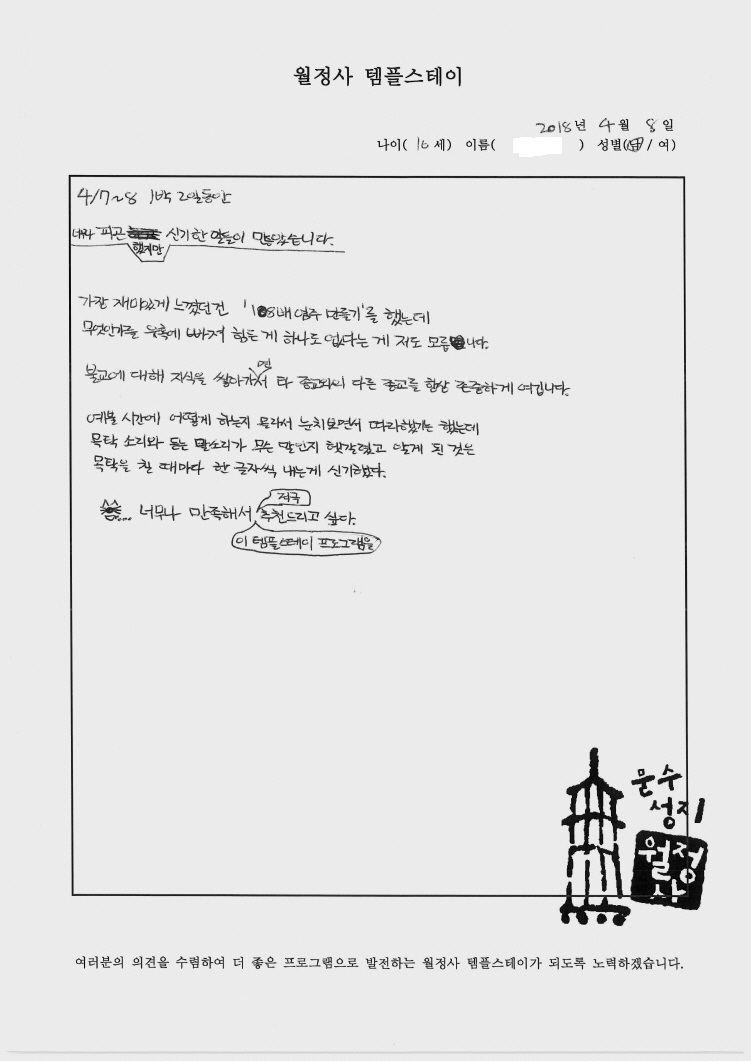 월정사 템플스테이
2018년 4월 8일
나이( 16 세) 이름( ) 성별(남 / 여)
4/7~8 1박 2일동안
피곤했지만 신기한 일들이 많았습니다.
가장 재미있게 느꼈던건 '108배 염주 만들기'를 했는데
무엇인가를 빠져 힘든 게 하나도 없다는 게 저도 모릅니다.
불교에 대해 지식을 쌓아가면서 타 종교와의 다른 종교를 항상 존중하게 여깁니다.
예불 시간에 어떻게 하는지 몰라서 눈치보면서 따라했기는 했는데
목탁 소리와 듣는 말소리가 무슨 말인지 헷갈렸고 알게 된 것은
목탁을 칠 때마다 한 글자씩 내는게 신기했다.
너무나 만족해서 적극 추천드리고 싶다.
이 템플스테이 프로그램을
문수
성지
월정
사
여러분의 의견을 수렴하여 더 좋은 프로그램으로 발전하는 월정사 템플스테이가 되도록 노력하겠습니다.